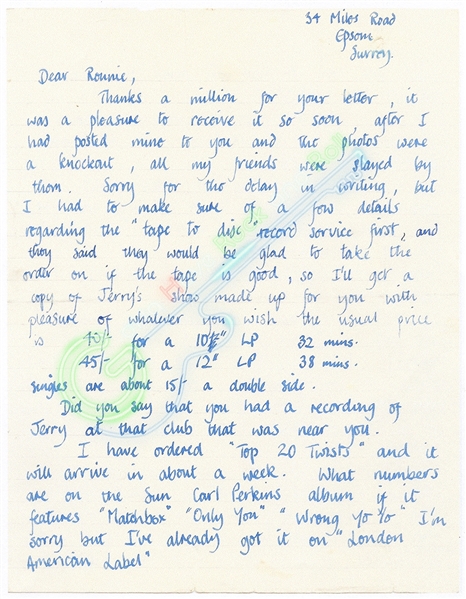 34 Miles Road
Epsom
Surrey.
Dear Ronnie,
Thanks a million for your letter, it
was a pleasure to receive it so soon, after I
had posted mine to you and the photos were
a knockout, all my friends were slayed by
them. Sorry for the delay in writing, but
I had to make sure of a few details
regarding the "tape to disc" record service first, and
they said they would be glad to take the
order on if the tape is good, so I'll get a
copy of Jerry's show made up for you with
pleasure of whatever you wish the usual price
is 40/- for a 10" LP 32 mins.
45/- for a 12" LP 38 mins.
singles are about 15/- a double side.
Did you say that you had a recording of
Jerry at that club that was near you.
I have ordered "Top 20 Twists" and it
will arrive in about a week. What numbers
are on the Sun Carl Perkins album if it
features "Matchbox" "Only You" "Wrong Yo Yo" I'm
sorry but I've already got it on "London
American Label"